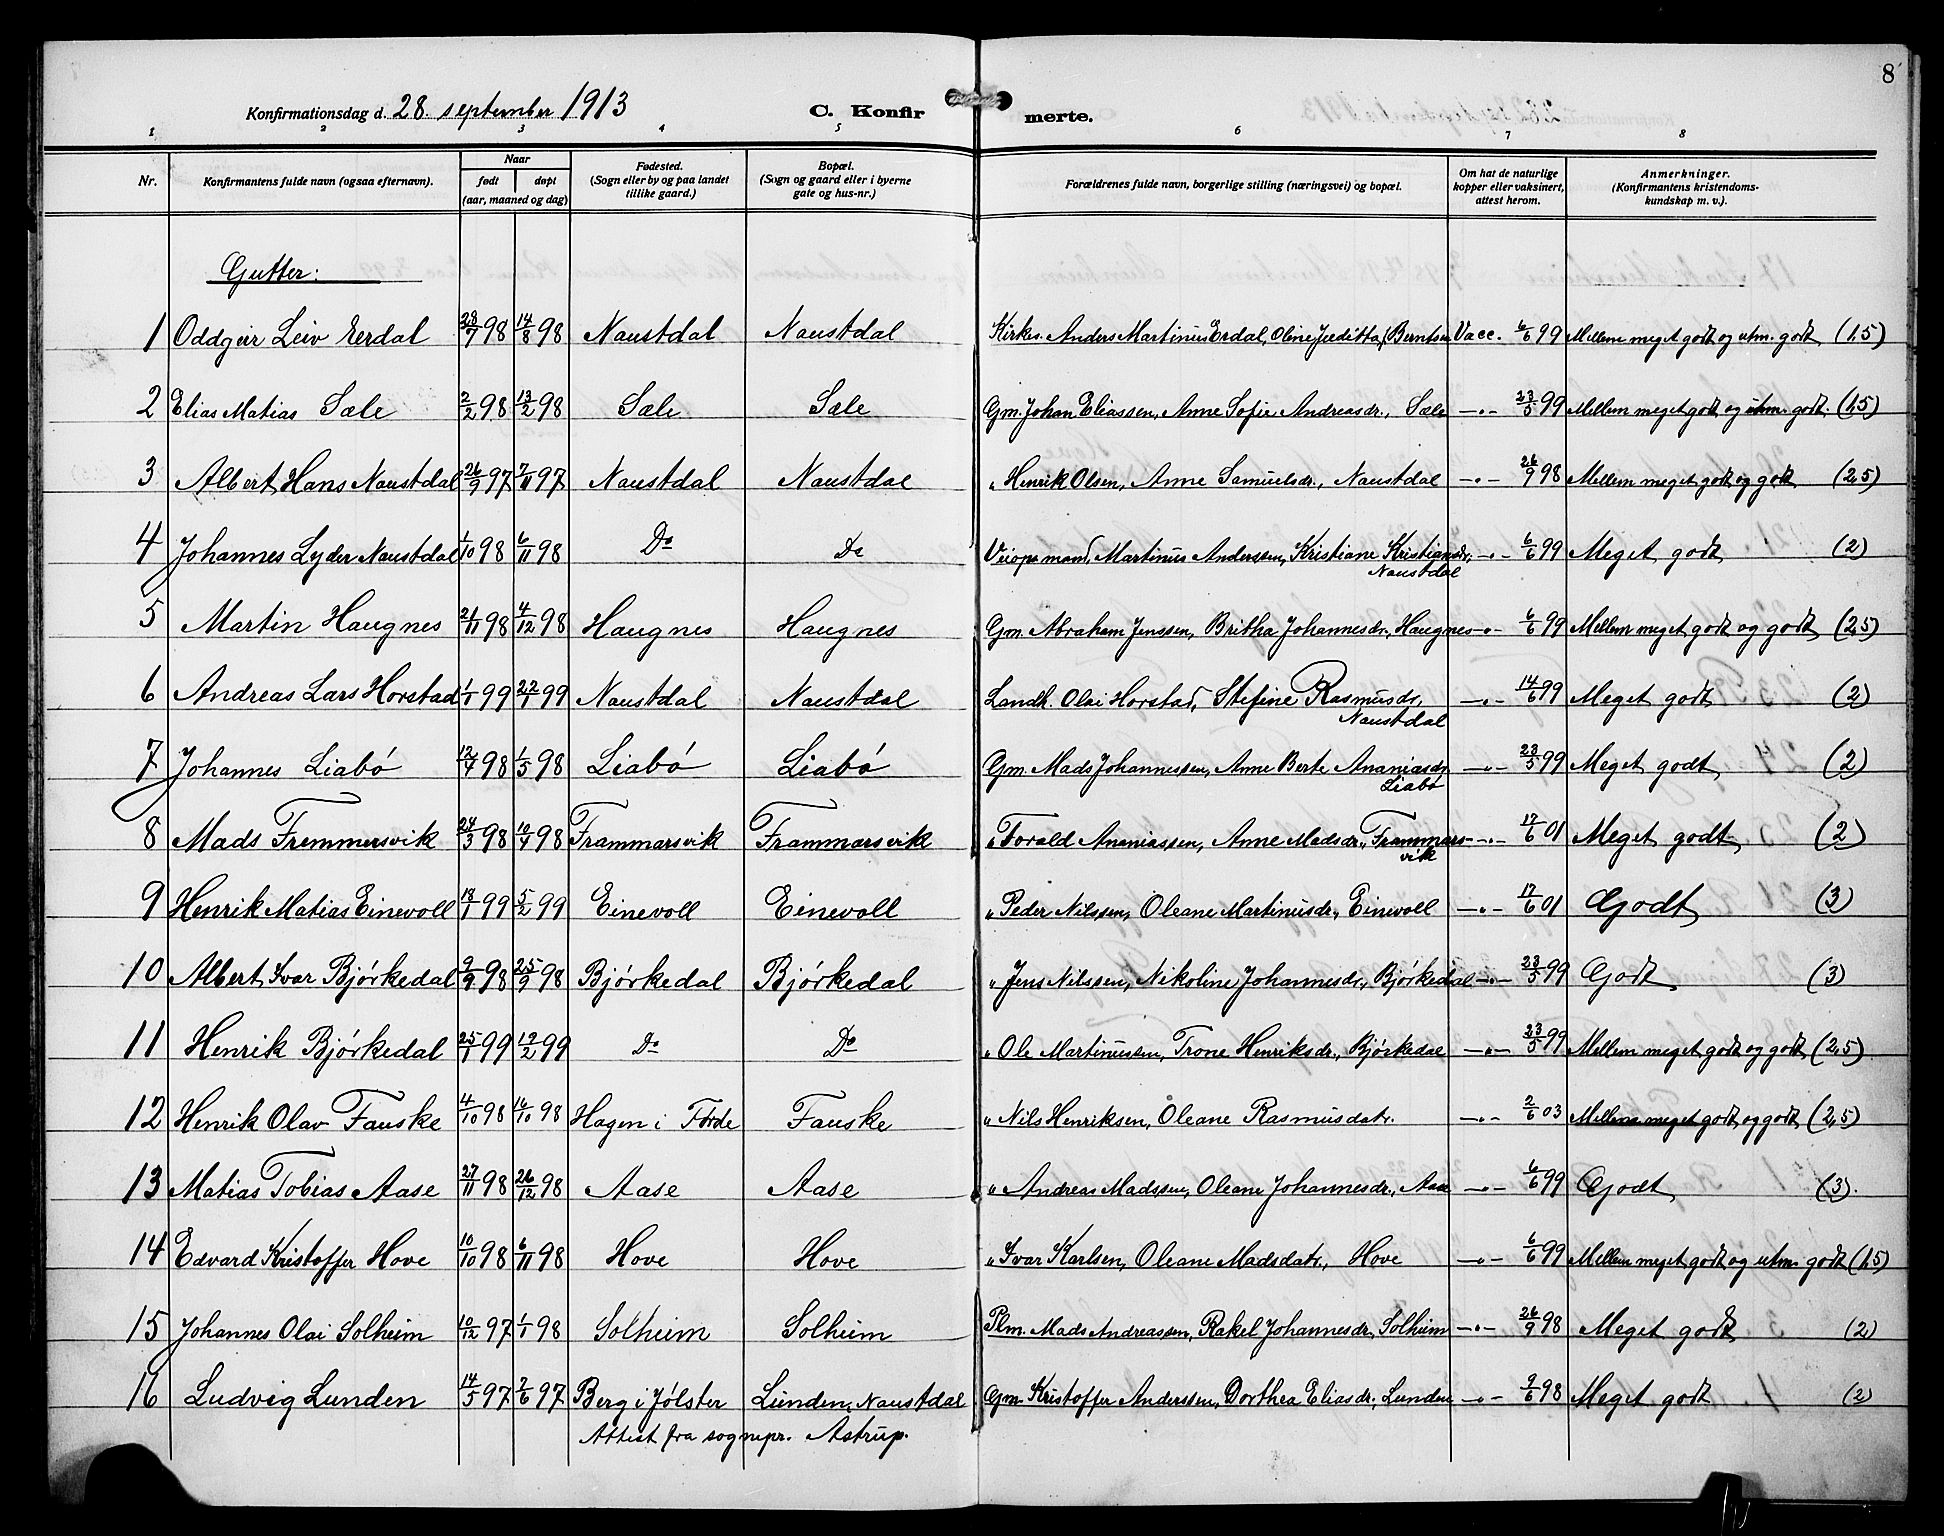 8
Konfirmationsdag d. 28. september 1913
C. Konfir merte.
1 2 3 4 5 6 7 8
Nr. Konfirmantens fulde navn (ogsaa efternavn). Naar født døpt (aar, maaned og dag) Fødested. (Sogn eller by og paa landet tillike gaard.) Bopæl. (Sogn og gaard eller i byerne gate og hus-nr.) Forældrenes fulde navn, borgerlige stilling (næringsvei) og bopæl. Om hat de naturlige kopper eller vaksinert, attest herom. Anmerkninger. (Konfirmantens kristendoms-kundskap m. v.).
Gutter:
1 Oddgeir Leiv Erdal 28/7 98 14/8 98 Naustdal Naustdal Kirkes. Anders Martinus Erdal, Oline Berntsen Vacc. 6/6 99 Mellem meget godt og utm. godt (1,5)
2 Elias Matias Sæle 2/2 98 13/2 98 Sæle Sæle Gm. Johan Eliassen, Anne Sofie Andreasdr., Sæle -"- 23/5 99 Mellem meget godt og utm. godt. (1,5)
3 Albert Hans Naustdal 26/9 97 7/11 97 Naustdal Naustdal " Henrik Olsen, Anne Samuelsdr., Naustdal -"- 26/9 98 Mellem meget godt og godt (2,5)
4 Johannes Lyder Naustdal 1/10 98 6/11 98 Do Do mand, Martinus Anderssen, Kristiane Kristiansdr., -"- 6/6 99 Meget godt (2)
Naustdal
5 Martin Haugnes 21/11 98 4/12 98 Haugnes Haugnes Gm. Abraham Jenssen, Britha Johannesdr., Haugnes -"- 6/6 99 Mellem meget godt og godt (2,5)
6 Andreas Lars Horstad 1/1 99 22/1 99 Naustdal Naustdal Landh. Olai Horstad, Stefine Rasmusdr., -"- 14/6 99 Meget godt (2)
Naustdal
7 Johannes Liabö 12/4 98 1/5 98 Liabö Liabö Gm. Mads Johannessen, Anne Berte Ananiasdr. -"- 23/5 99 Meget godt (2)
Liabö
8 Mads Fremmersvik 24/3 98 10/4 98 Frammarsvik Frammarsvik " Torald Ananiassen, Anne Madsdr., Frammars- -"- 17/6 01 Meget godt (2)
vik
9 Henrik Matias Einevoll 18/1 99 5/2 99 Einevoll Einevoll " Peder Nilssen, Oleane Martinusdr., Einevoll -"- 17/6 01 Godt (3)
10 Albert Ivar Björkedal 9/9 98 25/9 98 Björkedal Björkedal " Jens Nilssen, Nikoline Johannesdr., Björkedal -"- 23/5 99 Godt (3)
11 Henrik Björkedal 25/1 99 12/2 99 Do Do " Ole Martinussen, Trone Henriksdr., Björkedal -"- 23/5 99 Mellem meget godt og godt (2,5)
12 Henrik Olav Fauske 4/10 98 16/10 98 Hagen i Förde Fauske " Nils Henriksen, Oleane Rasmusdatr. -"- 2/6 03 Mellem meget godt og godt (2,5)
13 Matias Tobias Aase 27/11 98 26/12 98 Aase Aase " Andreas Madssen, Oleane Johannesdr., Aase -"- 6/6 99 Godt (3).
14 Edvard Kristoffer Hove 10/10 98 6/11 98 Hove Hove " Ivar Karlsen, Oleane Madsdatr., Hove -"- 6/6 99 Mellem meget godt og utm. godt (1,5)
15 Johannes Olai Solheim 10/12 97 1/1 98 Solheim Solheim Plm. Mads Andreassen, Rakel Johannesdr., Solheim -"- 26/9 98 Meget godt (2)
16 Ludvig Lunden 14/5 97 7/6 97 Berg i Jölster Lunden, Naustdal Gm. Kristoffer Anderssen, Dorthea Eliasdr., Lunden -"- 9/6 98 Meget godt (2)
Attest fra sognepr. Astrup.